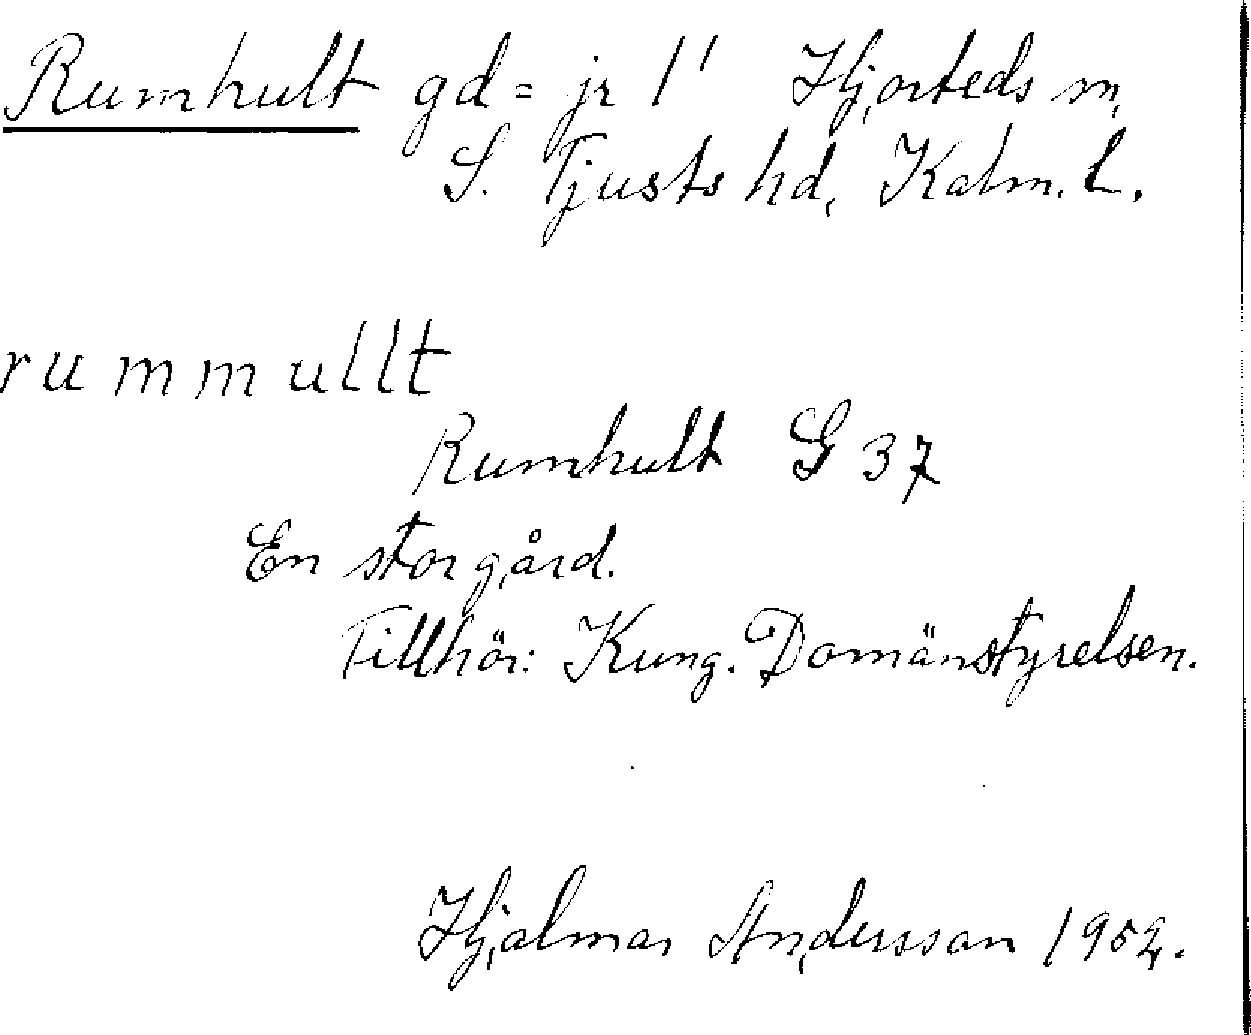 Rumhult gd = jr 1' Hjorteds sn,
S. Tjusts hd, Kalm. L.
rummullt
Rumhult G 37
En storgård.
Tillhör: Kung. Domänstyrelsen.
Hjalmar Andersson 1952.